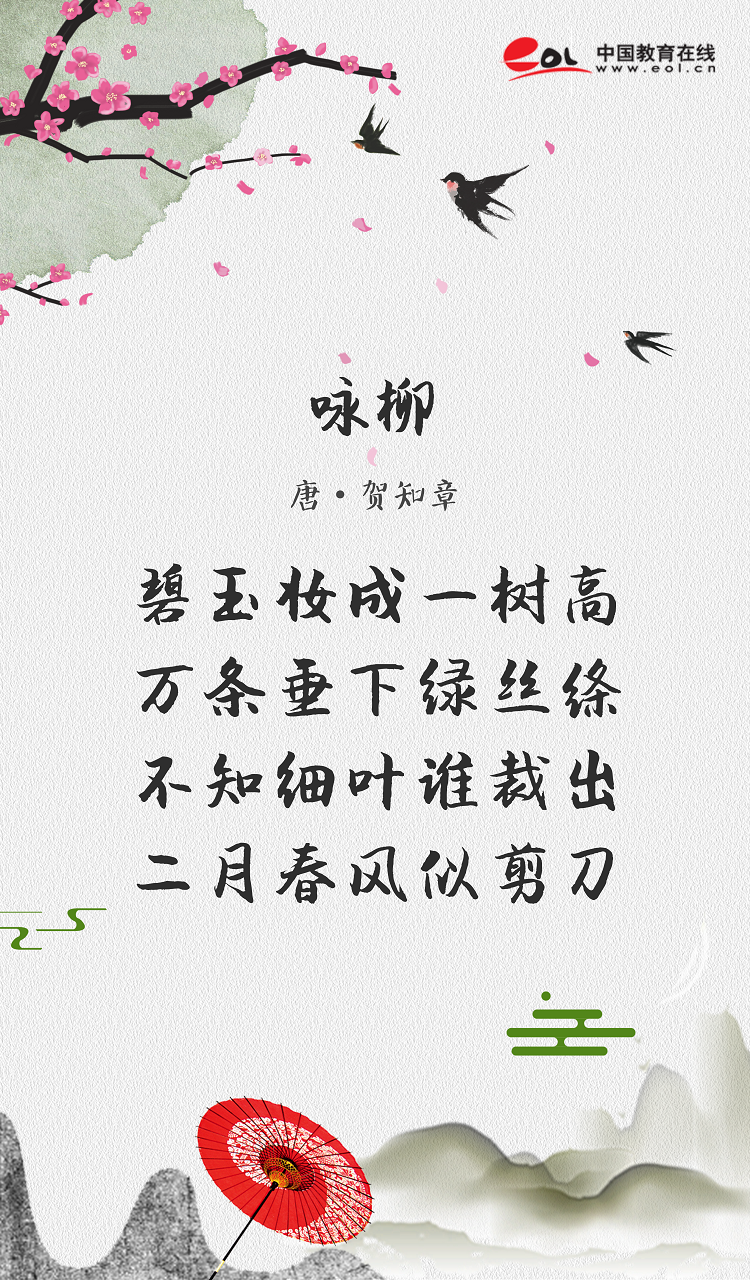 eol 中国教育在线
www.eol.cn
咏柳
唐·贺知章
碧玉妆成一树高
万条垂下绿丝绦
不知细叶谁裁出
二月春风似剪刀